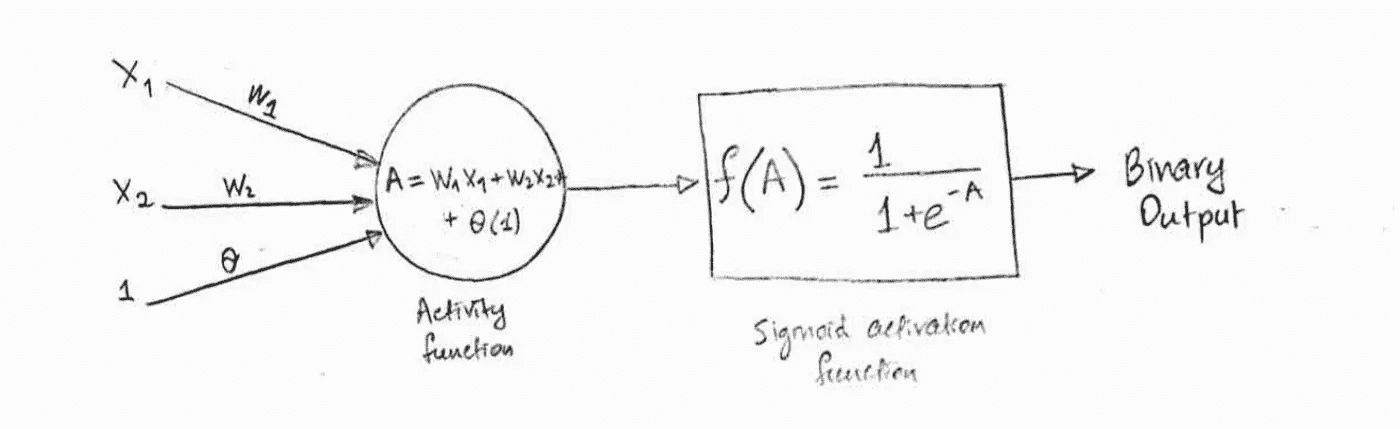 X₁
W₁
X₂
W₂
1
θ
A = W₁X₁ + W₂X₂ +
+ θ(1)
Activity
function
f(A) = 1 / 1+e^-A
Sigmoid activation
function
Binary
Output